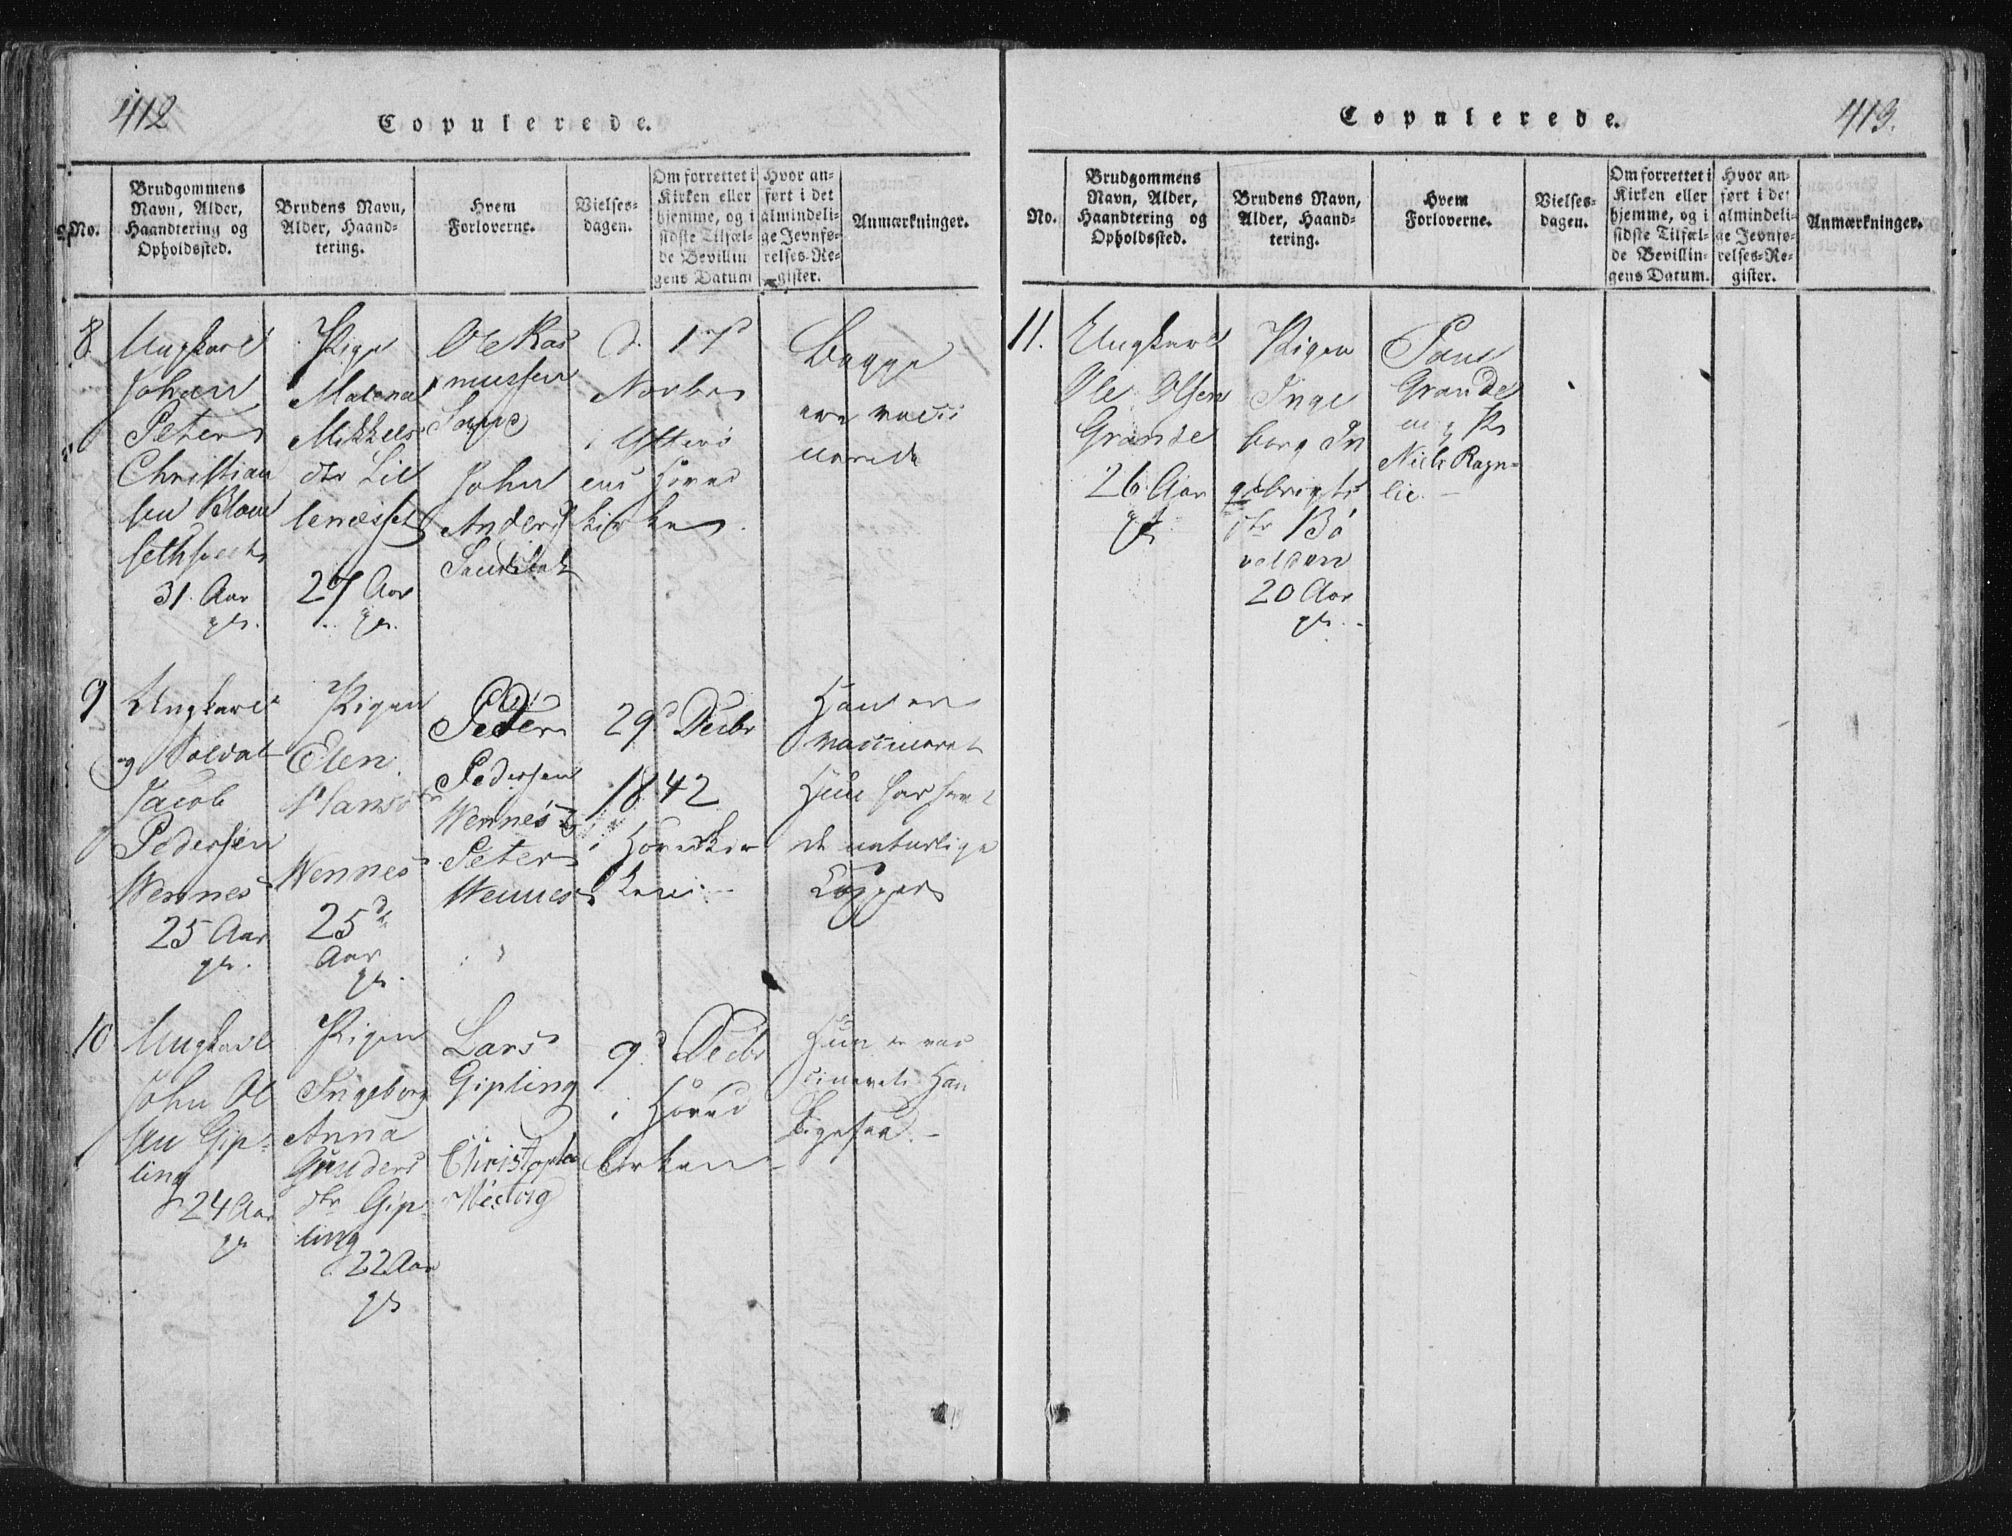 412
Copulerede.
No.
Brudgommens
Navn, Alder,
Haandtering og
Opholdssted.
Brudens Navn,
Alder, Haand-
tering.
Hvem
Forloverne.
Vielses-
dagen.
Om forrettet i
Kirken eller
hjemme, og i
sidste Tilfæl-
de Bevillin
gens Datum
Hvor an-
ført i det
almindeli-
ge Jevnfø-
relses-Re-
gister.
Anmærkninger.
8.
Ungkarl
Johan
Peter
Christian
sen
31. Aar
Pige
Malena
Mikkels
dtr Lil
lenesset
27 Aar
Ole Ras
mussen
John
Anders
d. 17
Novbr
i
Hoved
kirken.
Begge
ere vacci
nerede
9
Ungkarl
og Soldat
Jacob
Pedersen
Wennes
25 Aar
Pigen
Elen
Hansd
Wennes
25
Aar
Peder
Pedersen
Wennes
Peter
Wennes
29d Decbr
1842
i Hovedkir
ken.
Han er
vaccineret
Hun har havt
de naturlige
Kopper
10
Ungkarl
John Ol
sen Gip-
ling
24 Aar
Pigen
Ingeborg
Anna
Gunders
dtr Gip
ling
22 Aar
Lars
Gipling
Christopher
9d Decbr
i Hoved
Kirken
Hun er vac
cineret Han
ligesaa.
Copulerede.
413.
No.
Brudgommens
Navn, Alder,
Haandtering og
Opholdssted.
Brudens Navn,
Alder, Haand-
tering.
Hvem
Forloverne.
Vielses-
dagen.
Om forrettet i
Kirken eller
hjemme, og i
sidste Tilfæl-
de Bevillin-
gens Datum.
Hvor an-
ført i det
almindeli-
ge Jevnfø-
relses-Re-
gister.
Anmærkninger.
11.
Ungkarl
Ole Olsen
Grande
26 Aar
Pigen
Inge
borg In
gebrigts
dtr Bø
volden
20 Aar
Grande
Niels Ragn-
lie.